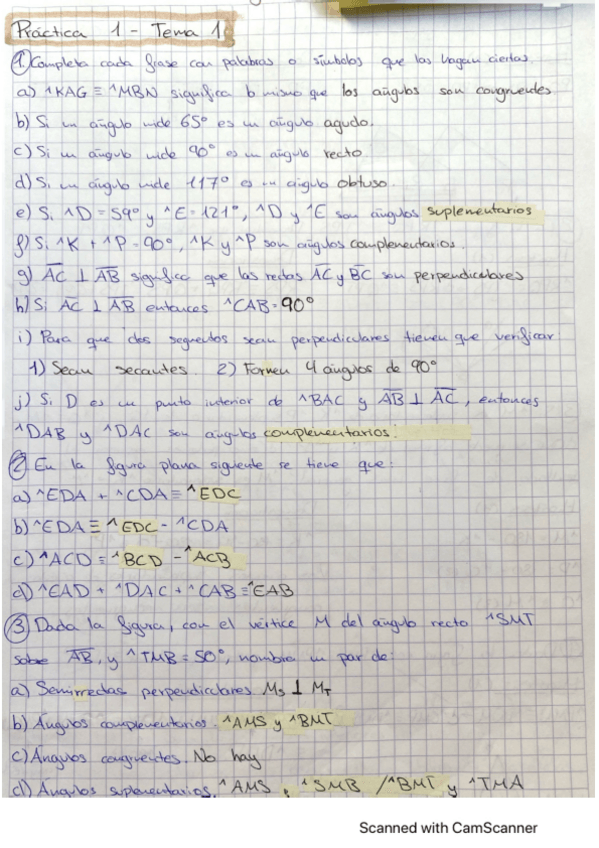 Práctica 1 - Tema 1
① Completa cada frase con palabras o símbolos que las hagan ciertas.
a) ^KAG ≡ ^MBN significa lo mismo que los ángulos son congruentes
b) Si un ángulo mide 65° es un ángulo agudo.
c) Si un ángulo mide 90° es un ángulo recto
d) Si un ángulo mide 117° es un ángulo obtuso.
e) Si ^D = 59° y ^E = 121°, ^D y ^E son ángulos suplementarios
f) Si ^K + ^P = 90°, ^K y ^P son ángulos complementarios.
g) A̅C̅ ⊥ A̅B̅ significa que las rectas A̅C̅ y B̅C̅ son perpendiculares
h) Si A̅C̅ ⊥ A̅B̅ entonces ^CAB = 90°
i) Para que dos segmentos sean perpendiculares tienen que verificar
1) Sean secantes. 2) Formen 4 ángulos de 90°
j) Si D es un punto interior de ^BAC y A̅B̅ ⊥ A̅C̅, entonces
^DAB y ^DAC son ángulos complementarios.
② En la figura plana siguiente se tiene que:
a) ^EDA + ^CDA ≡ ^EDC
b) ^EDA ≡ ^EDC - ^CDA
c) ^ACD = ^BCD - ^ACB
d) ^EAD + ^DAC + ^CAB ≡ ^EAB
③ Dada la figura, con el vértice M del ángulo recto ^SMT
sobre A̅B̅, y ^TMB = 50°, nombra un par de:
a) Semirrectas perpendiculares Ms ⊥ MT
b) Ángulos complementarios. ^AMS y ^BMT
c) Ángulos congruentes. No hay
d) Ángulos suplementarios. ^AMS , ^SMB / ^BMT y ^TMA
Scanned with CamScanner